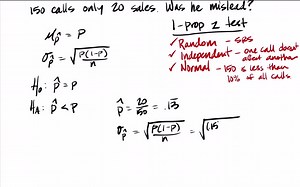 150 calls only 20 sales. Was he mislead?
1-prop z test
μp̂ = P
σp̂ = √P(1-P)/n
✓ Random - SRS
✓ Independent - one call doesn't affect another
✓ Normal - 150 is less than 10% of all calls.
H₀: p̂ = P
HA: p̂ < P
p̂ = 20/50 = .13
σp̂ = √P(1-P)/n = √(.15